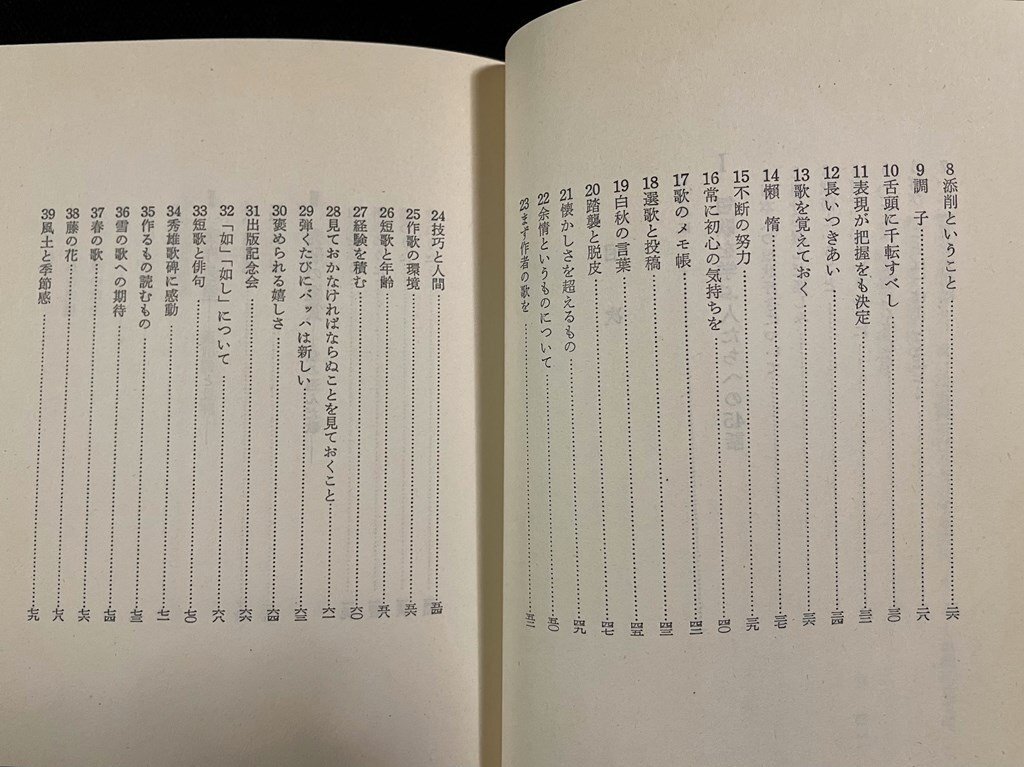 8 添削ということ……二六
9 調子……二八
10 舌頭に千転すべし……三〇
11 表現が把握をも決定……三二
12 長いつきあい……三四
13 歌を覚えておく……三六
14 懶惰……三七
15 不断の努力……三九
16 常に初心の気持ちを……四〇
17 歌のメモ帳……四二
18 選歌と投稿……四三
19 白秋の言葉……四五
20 踏襲と脱皮……四七
21 懐かしさを超えるもの……四九
22 余情というものについて……五〇
23 まず作者の歌を……五二
24 技巧と人間……五四
25 作歌の環境……五六
26 短歌と年齢……五八
27 経験を積む……六〇
28 見ておかなければならぬことを見ておくこと……六一
29 弾くたびにバッハは新しい……六三
30 褒められる嬉しさ……六四
31 出版記念会……六六
32 「如」「如し」について……六八
33 短歌と俳句……七〇
34 秀雄歌碑に感動……七一
35 作るもの読むもの……七三
36 雪の歌への期待……七四
37 春の歌……七六
38 藤の花……七八
39 風土と季節感……七九